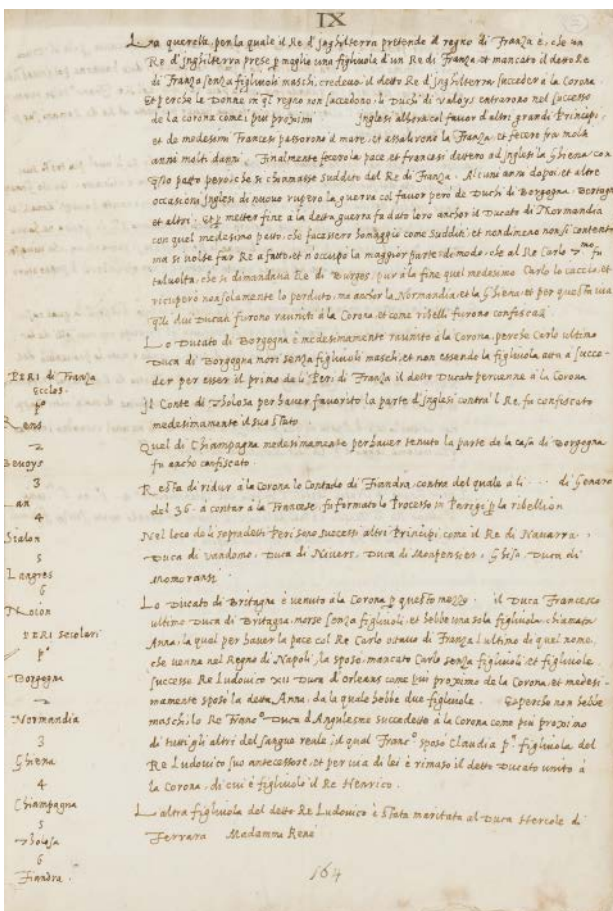 IX
La querella, per la quale il Re d'Inghilterra pretende il regno di Franza è, che un
Re d'Inghilterra prese p moglie una figliuola d'un Re di Franza, et mancato il detto Re
di Franza senza figliuoli maschi, credeva il detto Re d'Inghilterra succeder à la Corona.
Et perche le Donne in ql regno non succedono, li Duchi di Valoys entrarono nel successo
de la corona come i piu proximi Inglesi allhora col favor d'altri grandi Principi,
et de medesimi Francesi passorono il mare, et assalirono la Franza, et fecero fra molti
anni molti danni. Finalmente fecero la pace, et francesi dettero ad Inglesi la Ghiena con
patto pero, che si chiamasse suddito del Re di Franza. Alcuni anni dopoi, et altre
occasioni Inglesi di nuovo rupero la guerra col favor però de Duchi di Borgogna, Bertagna
et altri. Et p metter fine à la detta guerra fu dato loro anchor il Ducato di Normandia
con quel medesimo patto, che facessero homaggio come sudditi; et nendimeno non si contento
ma si volse far Re a fatto, et n'occupò la maggior parte, di modo, che al Re Carlo 7mo fu
talvolta, che si dimandava Re di Burges. pur à la fine quel medesimo Carlo lo caccio, et
ricuperò non solamente lo perduto, ma anchor la Normandia, et la Ghiena, et per questa via
qlli dui Ducati furono raunati à la Corona, et come ribelli furono confiscati
Lo Ducato di Borgogna è medesimamente raunito à la Corona, perche Carlo ultimo
Duca di Borgogna morì senza figliuoli masch, et non essendo la figliuola atta a succe-
der per esser il primo de li Peri di Franza il detto Ducato pervenne à la Corona
Il Conte di Tholosa per haver favorito la parte d'Inglesi contra'l Re, fu confiscato
medesimamente il suo stato
Quel di Chiampagna medesimamente per haver tenuto la parte de la casa di Borgogna
fu ancho confiscato.
Resta di ridur à la Corona lo Contado di Fiandra, contra del quale a li . . . di Genaro
del 36. à contar à la Francese, fu formato lo Processo in Parigi p la ribellion
Nel loco de li sopradetti Peri sono successi altri Principi come il Re di Navarra,
Duca di Vandomo, Duca di Nivers, Duca di Monpensier, Ghisa, Duca di
Momoransi.
Lo Ducato di Britagna è venuto à la Corona p questo mezzo. il Duca Francesco
ultimo Duca di Britagna, morse senza figliuoli, et hebbe una sola figliuola, chiamata
Anna, la qual per haver la pace col Re Carlo ottavo di Franza l'ultimo di quel nome,
che venne nel Regno di Napoli, la sposò, mancato Carlo senza figliuoli et figliuole.
Successe Re Ludovico XII Duca d'Orleans come piu proximo de la Corona, et medesi-
mamente sposò la detta Anna, da la quale hebbe due figliuole. Et perche non hebbe
maschi, lo Re Franco Duca d'Angulesme succedette à la Corona come piu proximo
di tutti gli altri del sangue reale, il qual Franco sposò Claudia pa figliuola del
Re Ludovico suo antecessore, et per via di lei è rimaso il detto Ducato unito à
la Corona, di cui è figliuolo il Re Henrico.
L'altra figliuola del detto Re Ludovico è stata maritata al Duca Hercole di
Ferrara Madamma Renè
PERI di Franza
Eccles.
po
Rens
2
Beuoys
3
Lan
4
Sialon
5
Langres
6
Noion
PERI secolari
po
Borgogna
2
Normandia
3
Ghiena
4
Chiampagna
5
Tholosa
6
Fiandra.
164